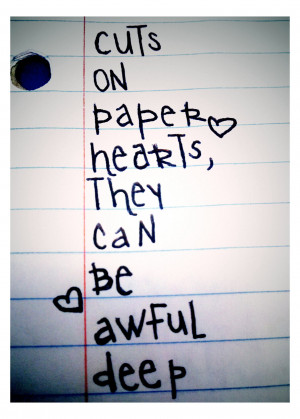 cuTs
ON
papeR
heaRTs,
They
caN
Be
awFuL
deep